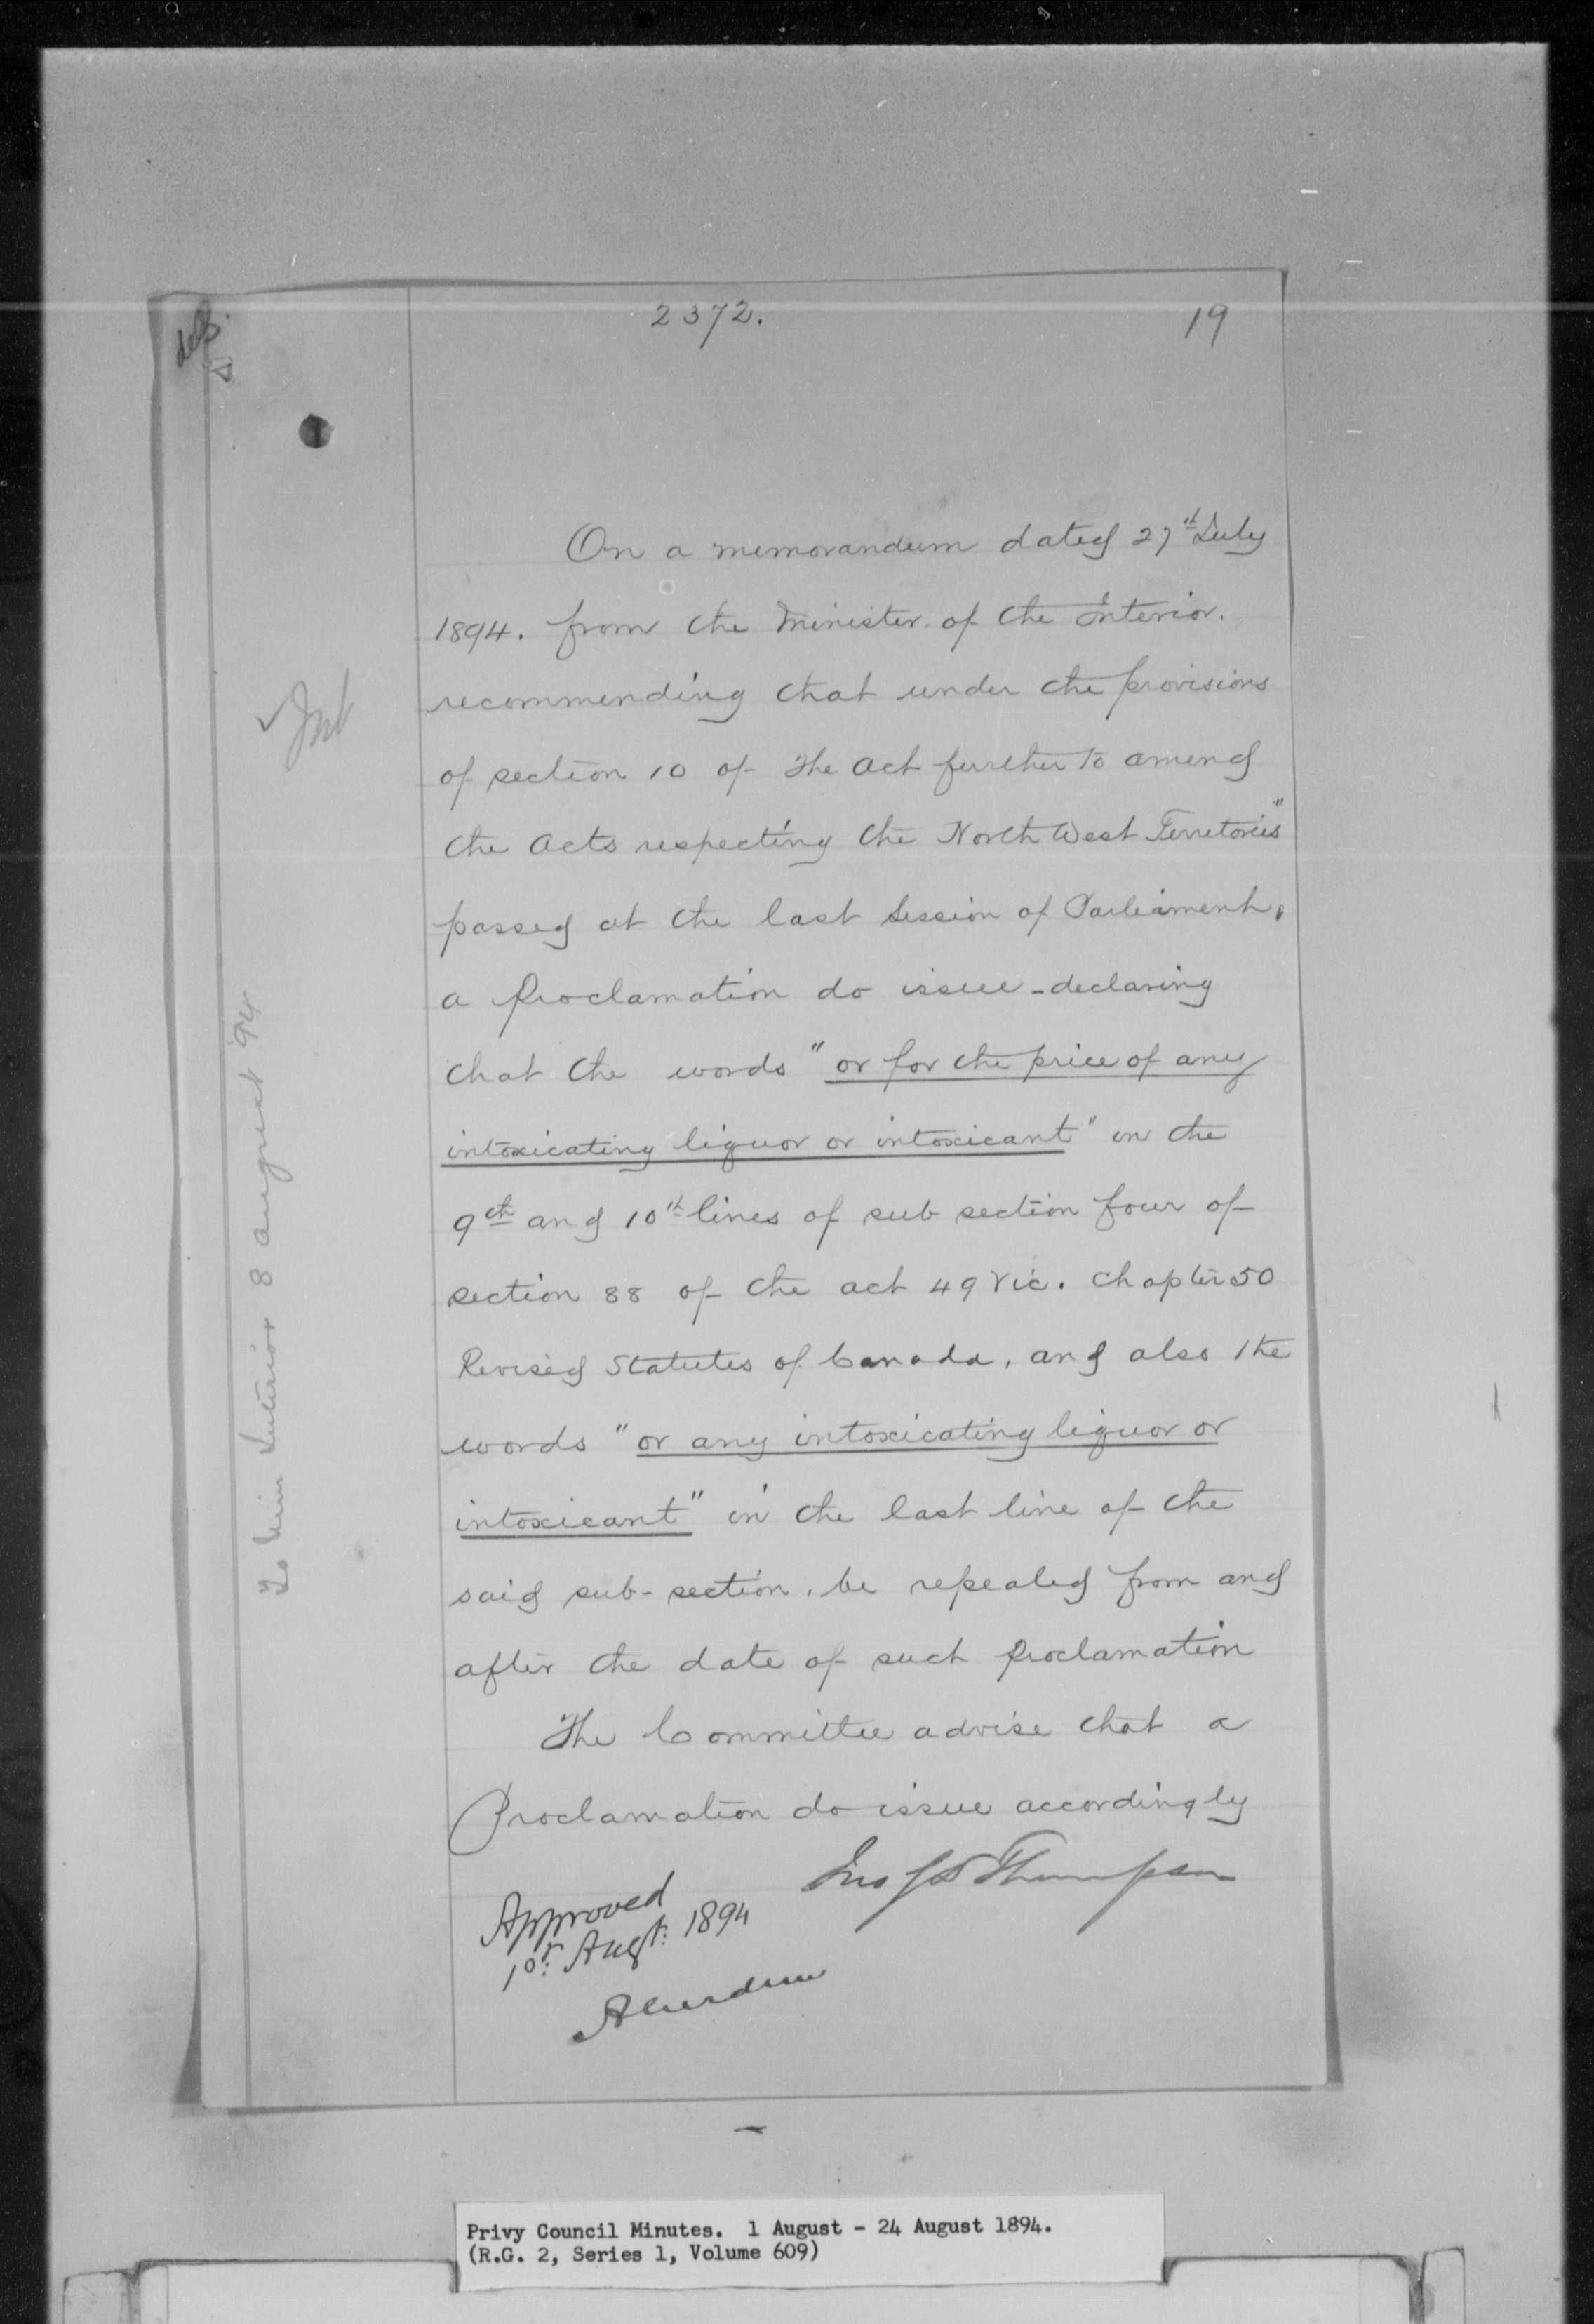 2372.
19
On a memorandum dated 27th July
1894. from the Minister of the Interior.
recommending that under the provisions
of section 10 of The Act further to amend
the Acts respecting the North West Territories"
passed at the last Session of Parliament,
a Proclamation do issue - declaring
that the words "or for the price of any
intoxicating liquor or intoxicant" in the
9th and 10th lines of sub section four of
section 88 of the act 49 Vic. Chapter 50
Revised Statutes of Canada, and also the
words "or any intoxicating liquor or
intoxicant" in the last line of the
said sub-section, be repealed from and
after the date of such Proclamation
The Committee advise that a
Proclamation do issue accordingly
Jno S D Thompson
Approved
1st Augt: 1894
Aberdeen
Int
To Min Interior 8 August 94
Privy Council Minutes. 1 August - 24 August 1894.
(R.G. 2, Series 1, Volume 609)